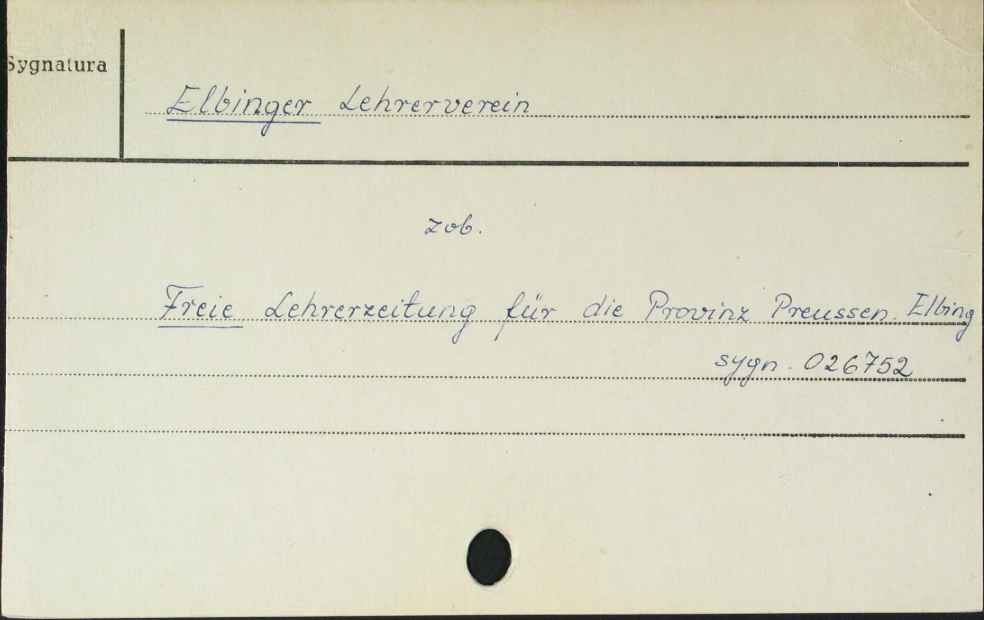 Sygnatura
Elbinger Lehrerverein
zob.
Freie Lehrerzeitung für die Provinz Preussen. Elbing
sygn. 026752